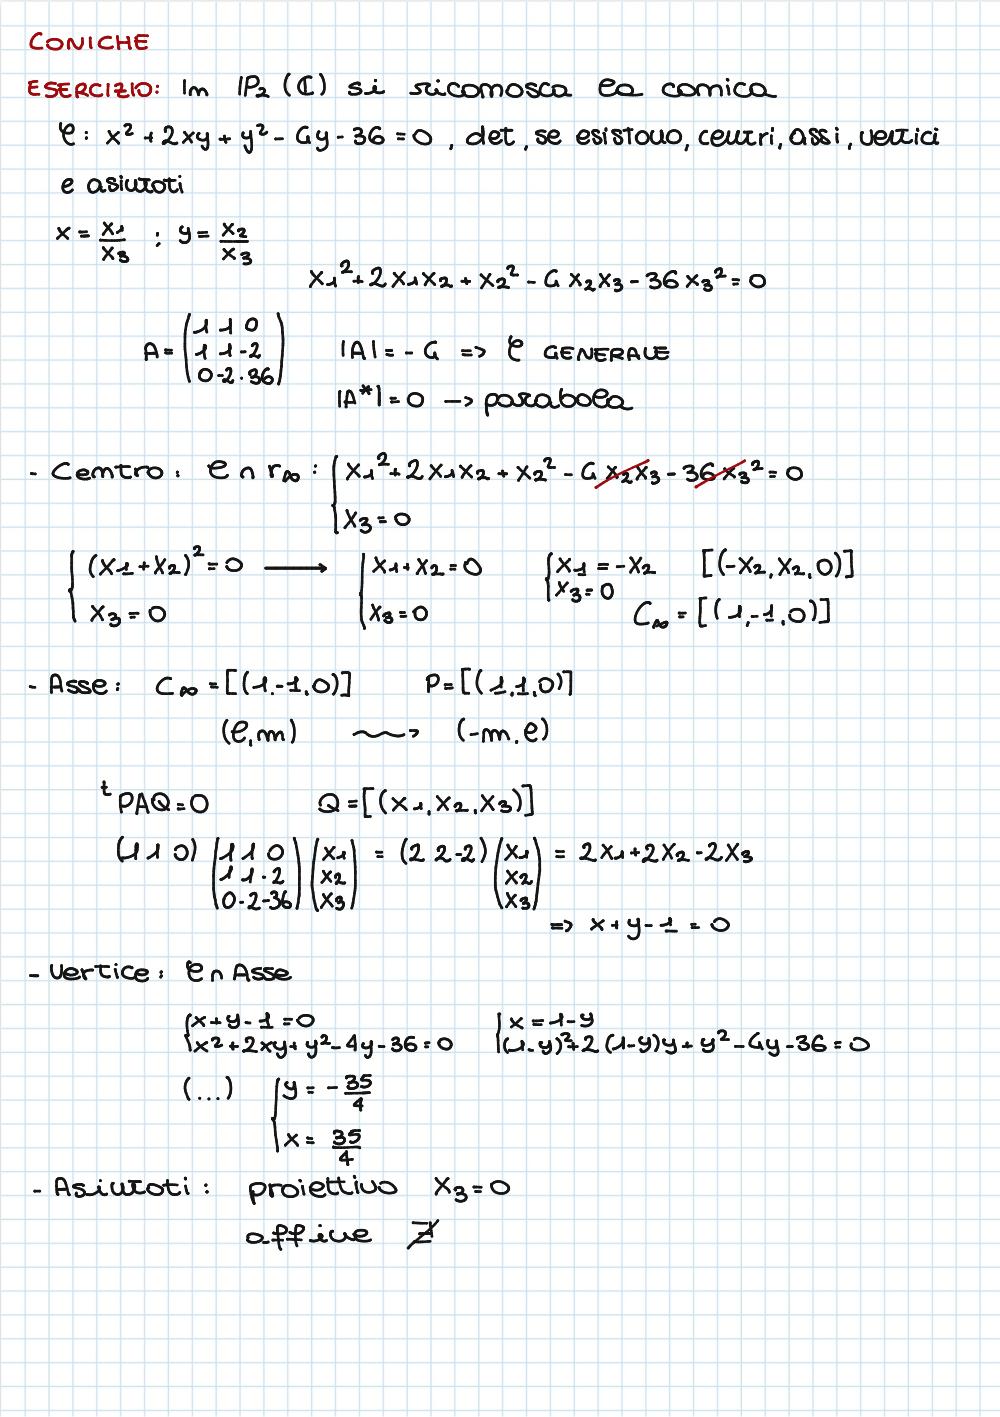 CONICHE
ESERCIZIO: In IP₂(ℂ) si riconosca la conica
C: x² + 2xy + y² - 4y - 36 = 0 , det, se esistono, centri, assi, vertici
e asintoti
x = x₁/x₃ ; y = x₂/x₃
x₁² + 2x₁x₂ + x₂² - 4x₂x₃ - 36x₃² = 0
A = (1 1 0 / 1 1 -2 / 0 -2 -36) |A| = -4 => C GENERALE
|A*| = 0 -> parabola
- Centro: C ∩ r∞ : { x₁² + 2x₁x₂ + x₂² - 4x₂x₃ - 36x₃² = 0
x₃ = 0
{ (x₁+x₂)² = 0 ⟶ { x₁+x₂ = 0 { x₁ = -x₂ [(-x₂, x₂, 0)]
x₃ = 0 x₃ = 0 x₃ = 0 C∞ = [(1,-1,0)]
- Asse: C∞ = [(1,-1,0)] P = [(1,1,0)]
(l,m) ⇝ (-m,l)
ᵗPAQ = 0 Q = [(x₁, x₂, x₃)]
(1 1 0) (1 1 0 / 1 1 -2 / 0 -2 -36) (x₁ / x₂ / x₃) = (2 2 -2) (x₁ / x₂ / x₃) = 2x₁ + 2x₂ - 2x₃
=> x + y - 1 = 0
- Vertice: C ∩ Asse
{ x + y - 1 = 0 { x = 1 - y
x² + 2xy + y² - 4y - 36 = 0 (1-y)² + 2(1-y)y + y² - 4y - 36 = 0
(...) { y = - 35/4
x = 35/4
- Asintoti: proiettivo x₃ = 0
affine ∄